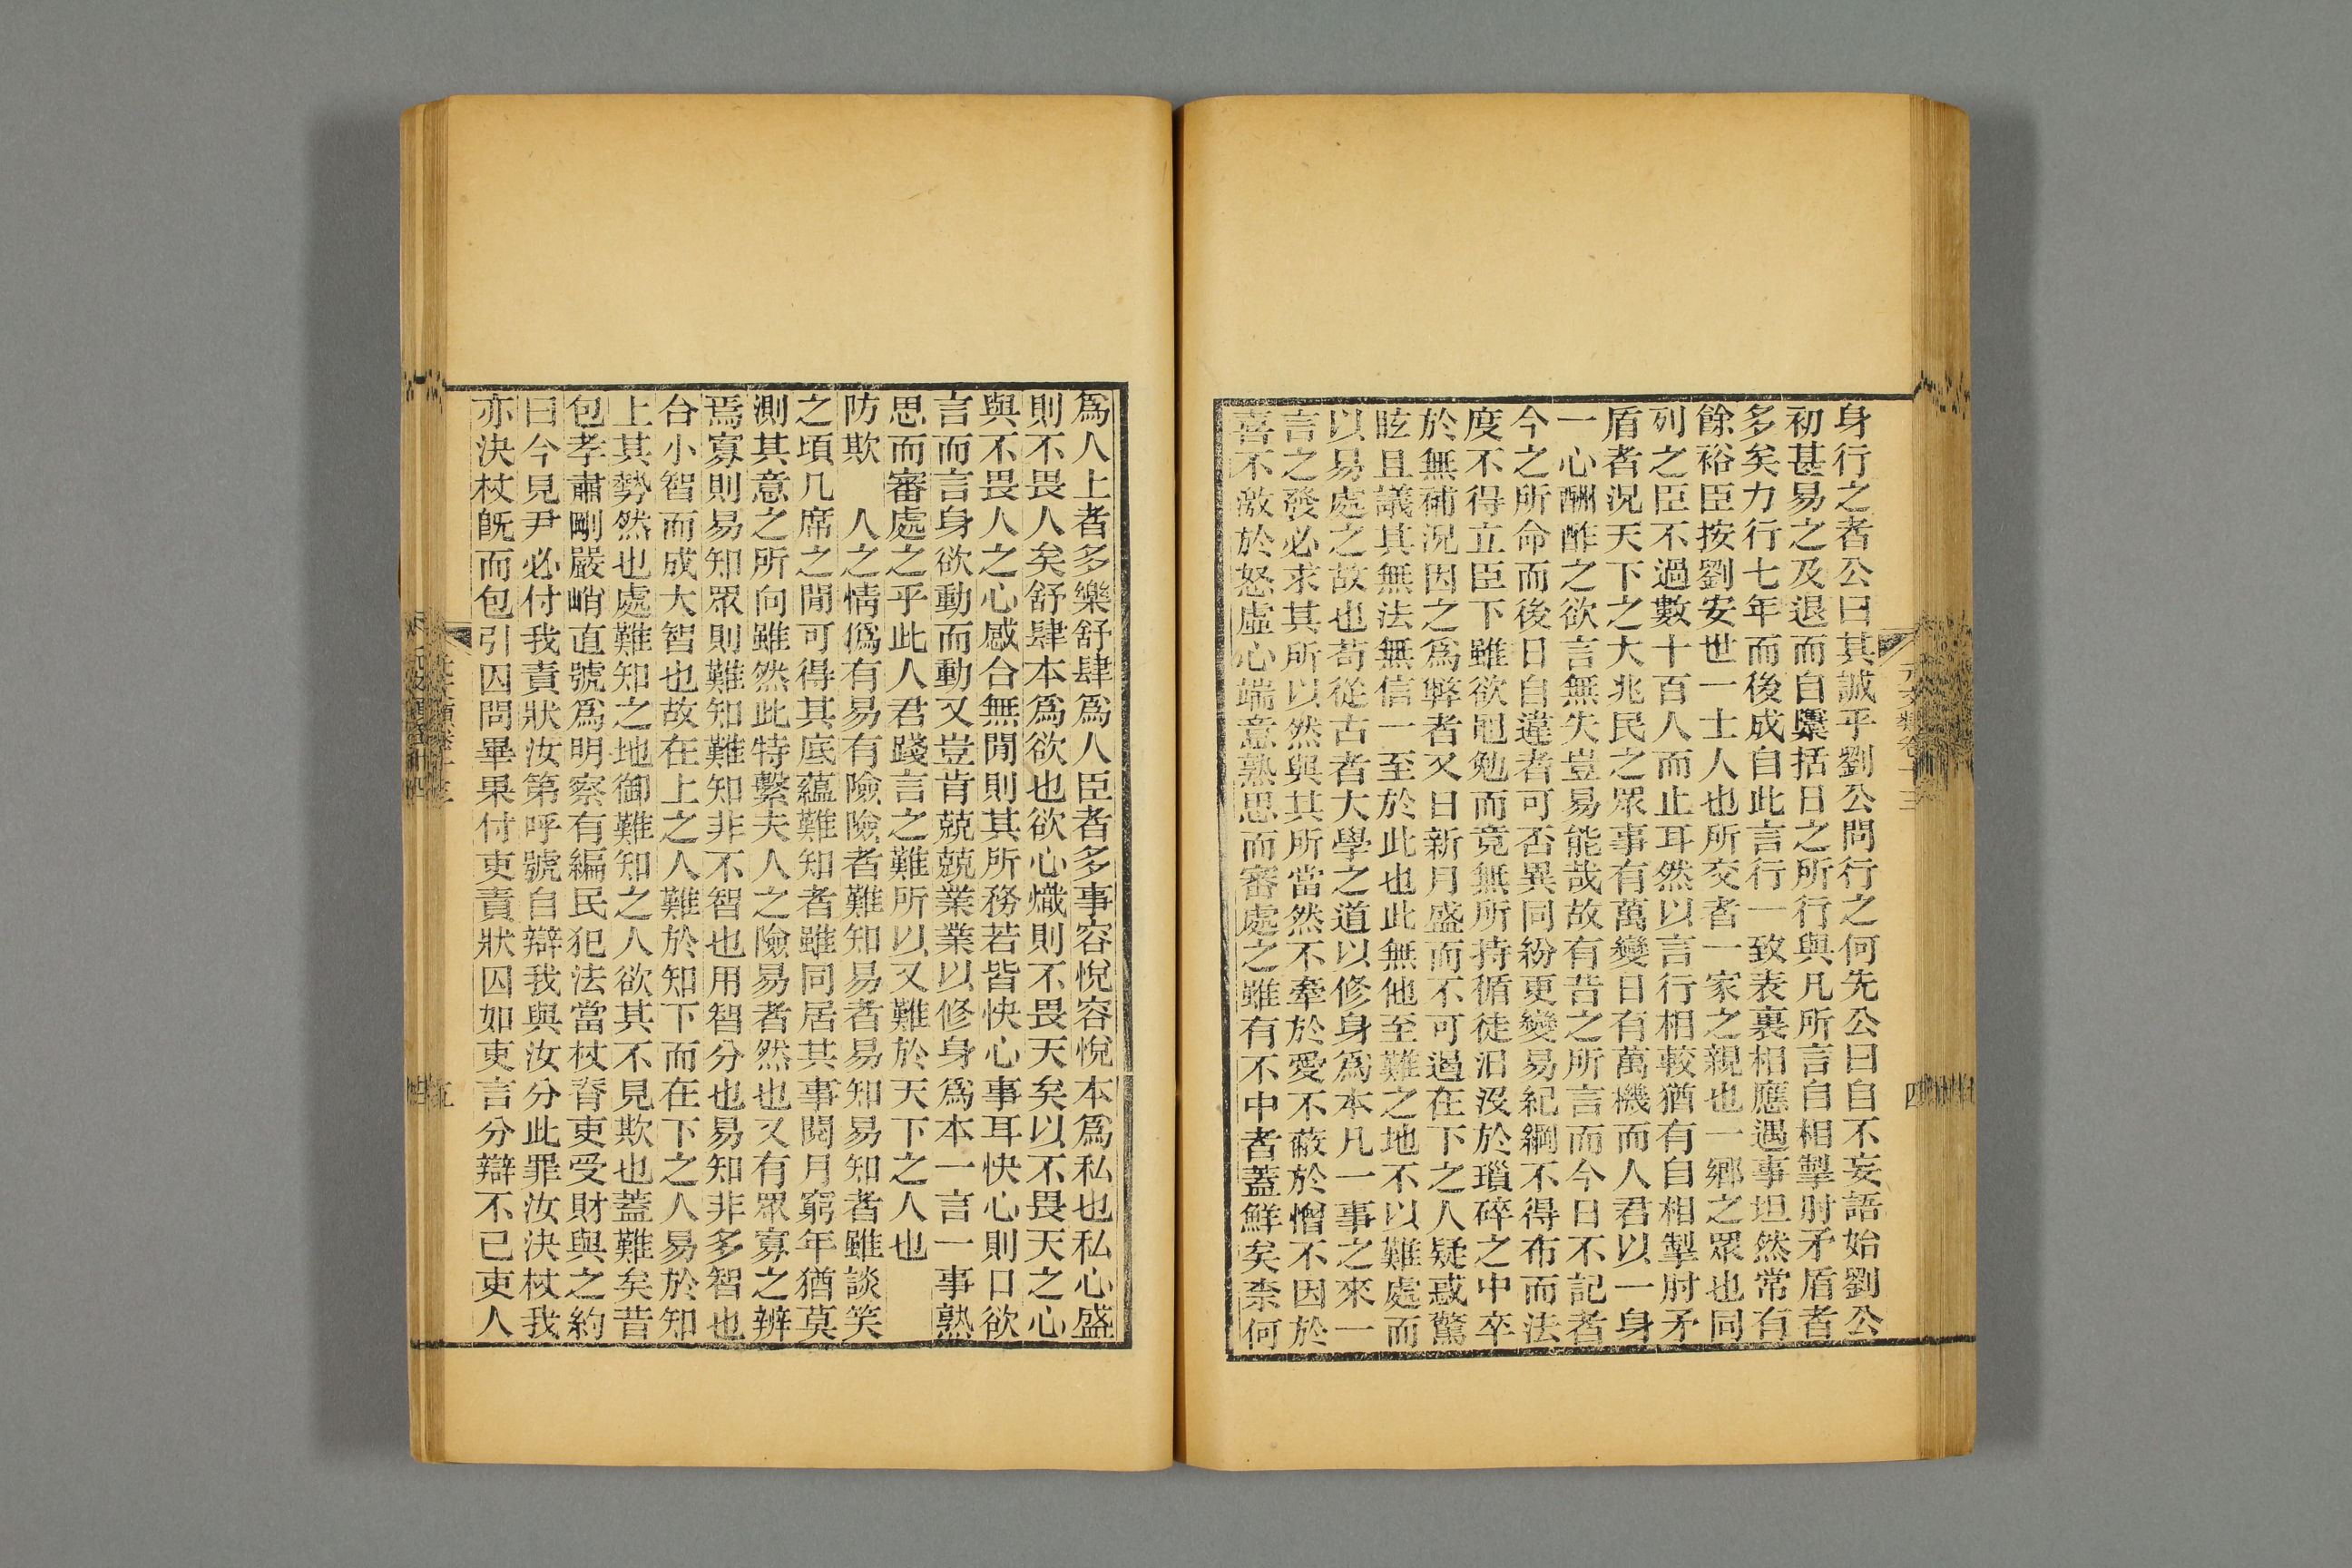 身行之者公曰其誠乎劉公問行之何先公曰自不妄語始劉公
初甚易之及退而自檃括日之所行與凡所言自相掣肘矛盾者
多矣力行七年而後成自此言行一致表裏相應遇事坦然常有
餘裕臣按劉安世一士人也所交者一家之親也一鄉之眾也同
列之臣不過數十百人而止耳然以言行相較猶有自相掣肘矛
盾者況天下之大兆民之眾事有萬變日有萬機而人君以一身
一心酬酢之欲言無失豈易能哉故有昔之所言而今日不記者
今之所命而後日自違者可否異同紛更變易紀綱不得布而法
度不得立臣下雖欲黽勉而竟無所持循徒汨沒於瑣碎之中卒
於無補況因之為弊者又日新月盛而不可遏在下之人疑惑驚
眩且議其無法無信一至於此也此無他至難之地不以難處而
以易處之故也苟從古者大學之道以修身為本凡一事之來一
言之發必求其所以然與其所當然不牽於愛不蔽於憎不因於
喜不激於怒虛心端意熟思而審處之雖有不中者蓋鮮矣柰何
元文類卷十三
四
為人上者多樂舒肆為人臣者多事容悅容悅本為私也私心盛
則不畏人矣舒肆本為欲也欲心熾則不畏天矣以不畏天之心
與不畏人之心感合無閒則其所務若皆快心事耳快心則口欲
言而言身欲動而動又豈肯兢兢業業以修身為本一言一事熟
思而審處之乎此人君踐言之難所以又難於天下之人也
防欺　人之情偽有易有險險者難知易者易知易知者雖談笑
之頃几席之閒可得其底蘊難知者雖同居其事閱月窮年猶莫
測其意之所向雖然此特繫夫人之險易者然也又有眾寡之辨
焉寡則易知眾則難知難知非不智也用智分也易知非多智也
合小智而成大智也故在上之人難於知下而在下之人易於知
上其勢然也處難知之地御難知之人欲其不見欺也蓋難矣昔
包孝肅剛嚴峭直號為明察有編民犯法當杖脊吏受財與之約
曰今見尹必付我責狀汝第呼號自辯我與汝分此罪汝決杖我
亦決杖既而包引囚問畢果付吏責狀囚如吏言分辯不已吏人
五